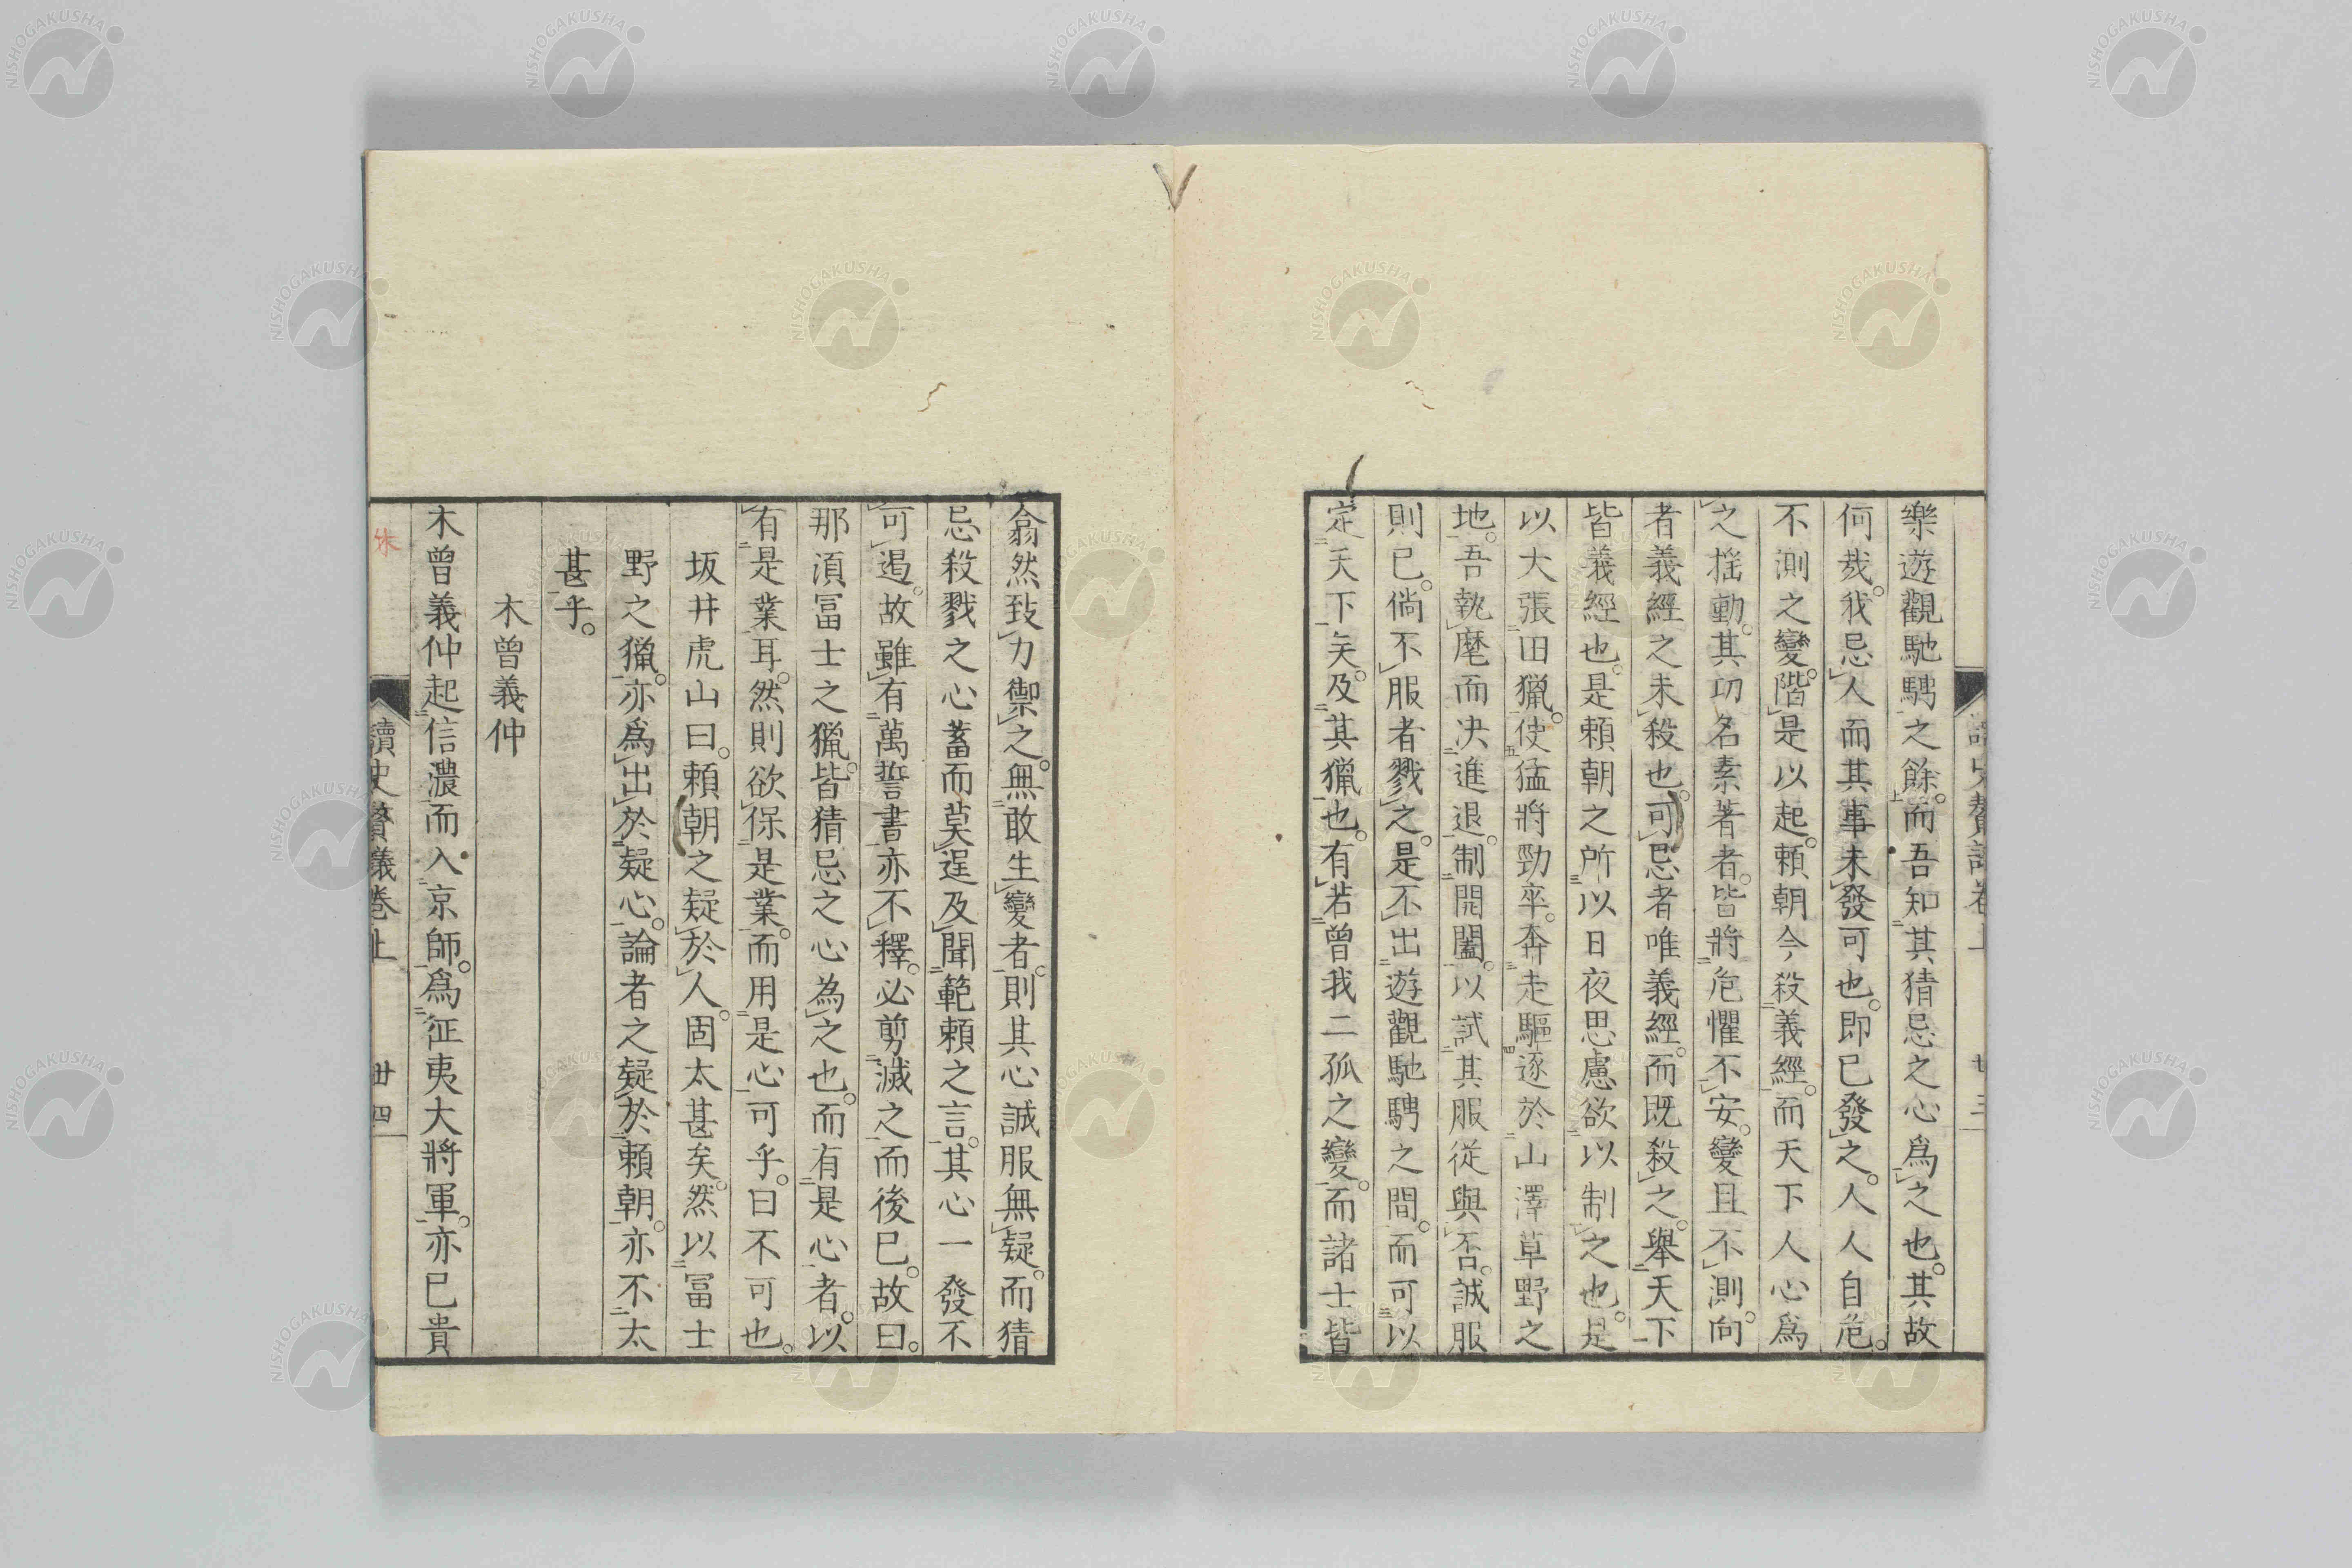 樂遊觀馳騁之餘。而吾知其猜忌之心爲之也。其故
何哉。我忌人而其事未發可也。即已發之。人人自危。
不測之變。階是以起。頼朝今殺義經。而天下人心爲
之揺動。其功名素著者。皆將危懼不安。變且不測。向
者義經之未殺也。可忌者唯義經。而既殺之。舉天下
皆義經也。是頼朝之所以日夜思慮欲以制之也。是
以大張田獵。使猛將勁卒。奔走驅逐於山澤草野之
地。吾執麾而决進退。制開闔。以試其服從與否。誠服
則已。倘不服者戮之。是不出遊觀馳騁之間。而可以
定天下矣。及其獵也。有若曾我二孤之變。而諸士皆
翕然致力禦之。無敢生變者。則其心誠服無疑。而猜
忌殺戮之心蓄而莫逞及聞範頼之言。其心一發不
可遏。故雖有萬誓書亦不釋。必剪滅之而後已。故曰。
那湏冨士之獵。皆猜忌之心為之也。而有是心者。以
有是業耳。然則欲保是業。而用是心可乎。曰不可也。
坂井虎山曰。頼朝之疑於人。固太甚矣。然以冨士
野之獵。亦爲出於疑心。論者之疑於頼朝。亦不太
甚乎。
木曾義仲
木曾義仲起信濃而入京師。爲征夷大將軍。亦已貴
讀史贅議卷上
廿四
NISHOGAKUSHA